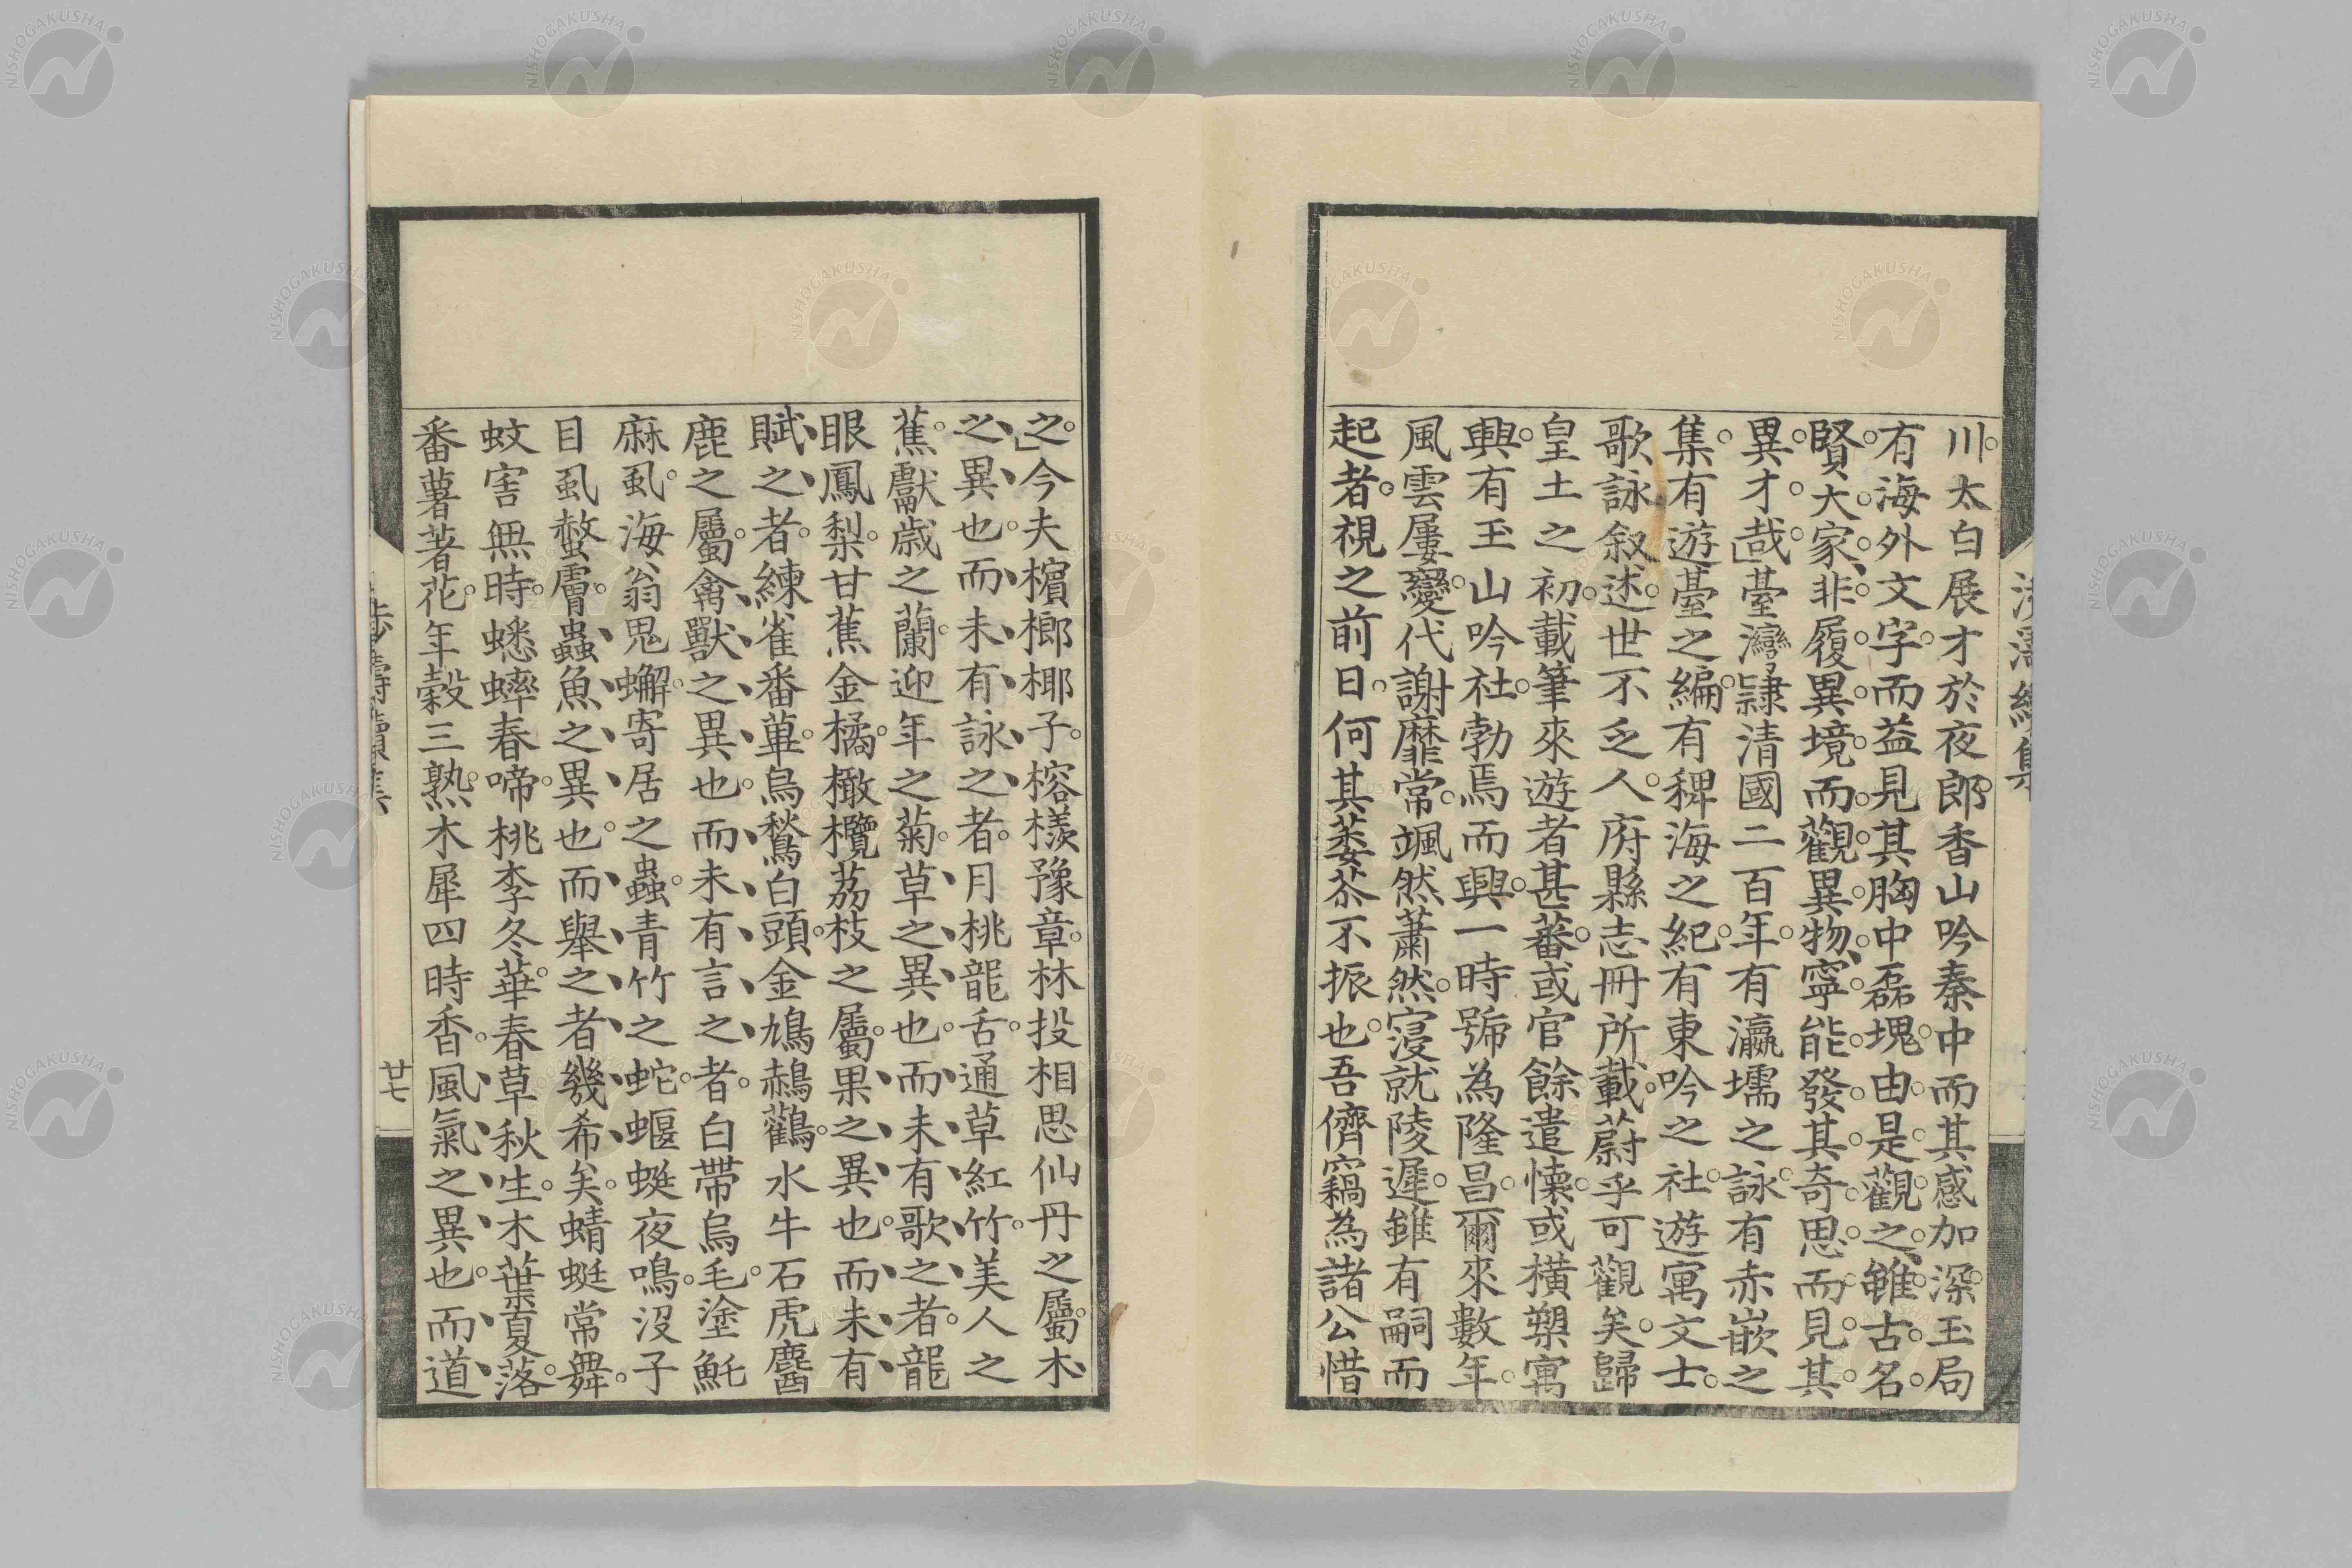 川太白展才於夜郎香山吟秦中而其感加深玉局
有海外文字而益見其胸中磊塊由是觀之雖古名
賢大家非履異境而觀異物寧能發其奇思而見其
異才哉臺灣隸清國二百年有瀛壖之詠有赤嵌之
集有遊臺之編有稗海之紀有東吟之社遊寓文士
歌詠叙述世不乏人府縣志冊所載蔚乎可觀矣歸
皇土之初載筆來遊者甚蕃或官餘遣懷或橫槊寓
興有玉山吟社勃焉而興一時號為隆昌爾來數年
風雲屢變代謝靡常颯然蕭然寖就陵遲雖有嗣而
起者視之前日何其萎苶不振也吾儕竊為諸公惜
之今夫檳榔椰子榕檨豫章林投相思仙丹之屬木
之異也而未有詠之者月桃龍舌通草紅竹美人之
蕉獻歲之蘭迎年之菊草之異也而未有歌之者龍
眼鳳梨甘蕉金橘橄欖荔枝之屬果之異也而未有
賦之者練雀番萆烏鶖白頭金鳩鵲鸛水牛石虎麈
鹿之屬禽獸之異也而未有言之者白帶烏毛塗魠
麻虱海翁鬼蠏寄居之蟲青竹之蛇蝘蜓夜鳴沒子
目虱螫膚蟲魚之異也而舉之者幾希矣蜻蜓常舞
蚊害無時蟋蟀春啼桃李冬華春草秋生木葉夏落
番薯著花年穀三熟木犀四時香風氣之異也而道
廿七